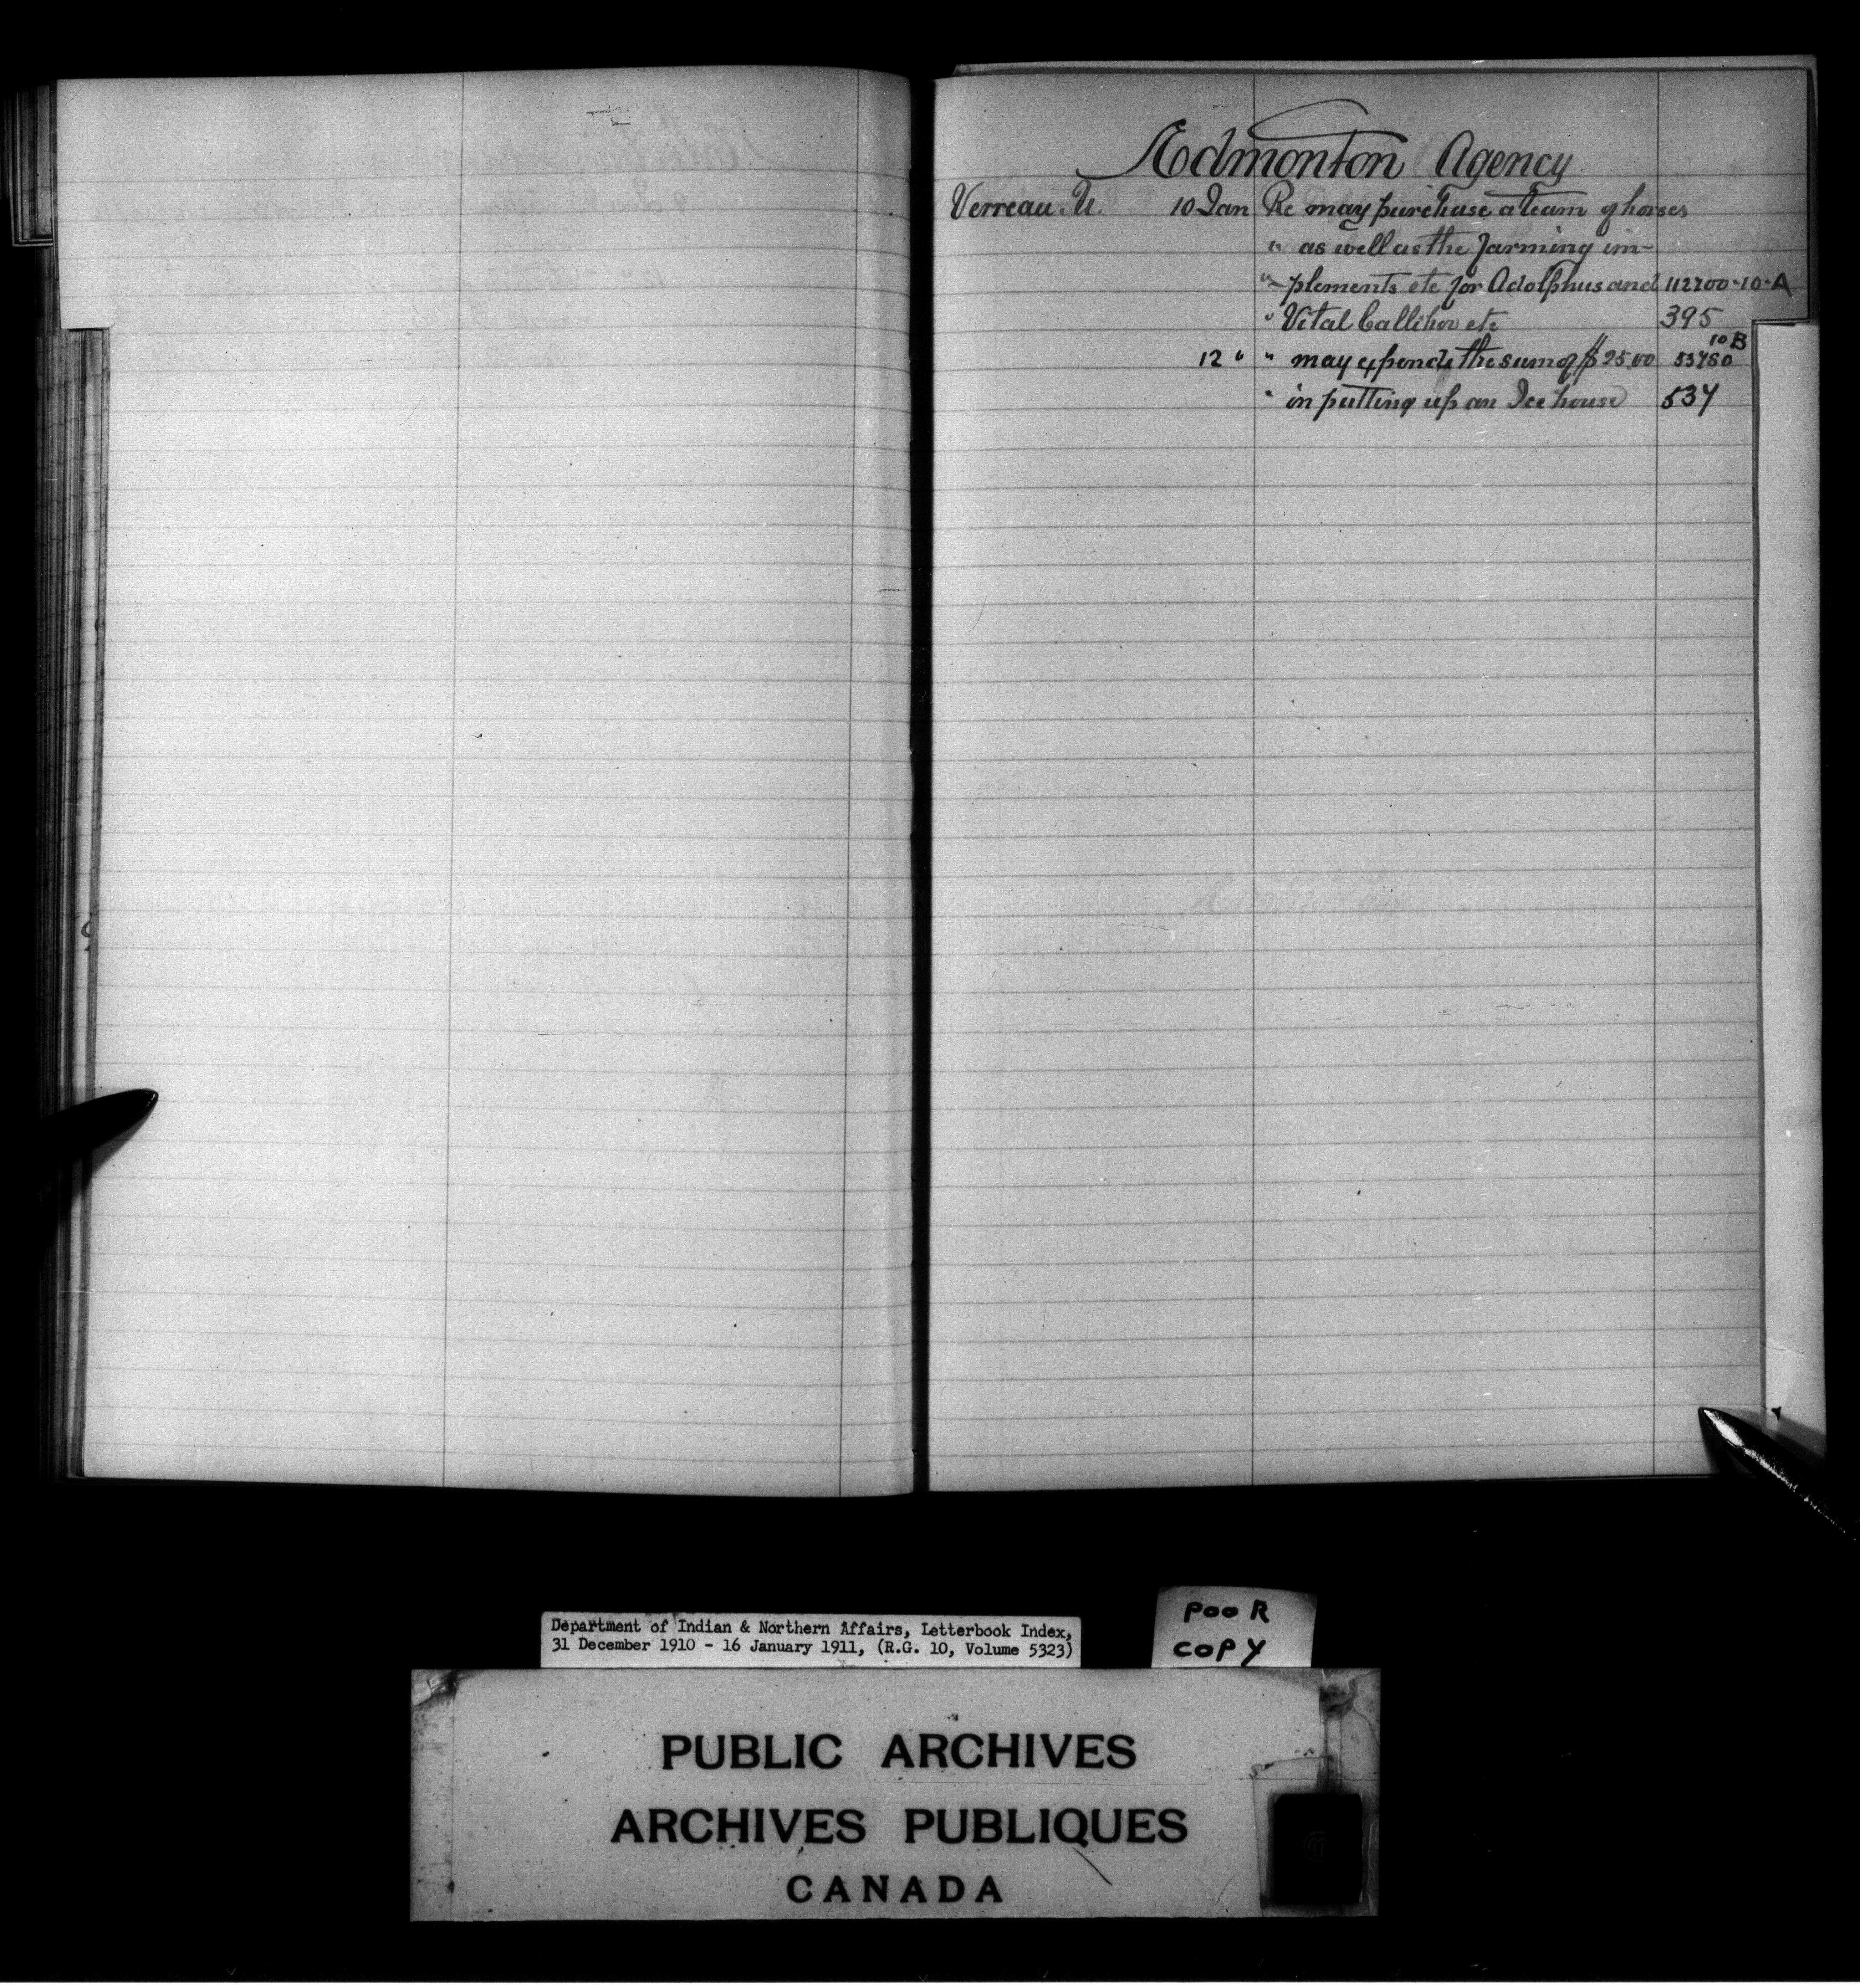 Edmonton Agency
Verreau. U. 10 Jan Re may purchase a team of horses
" as well as the farming im-
" plements etc for Adolphus and 112700-10-A
" Vital Callihoo etc 395
10 B
12 " " may expend the sum of $25.00 53480
" in putting up an Ice house 534
Department of Indian & Northern Affairs, Letterbook Index,
31 December 1910 - 16 January 1911, (R.G. 10, Volume 5323)
POOR
COPY
PUBLIC ARCHIVES
ARCHIVES PUBLIQUES
CANADA